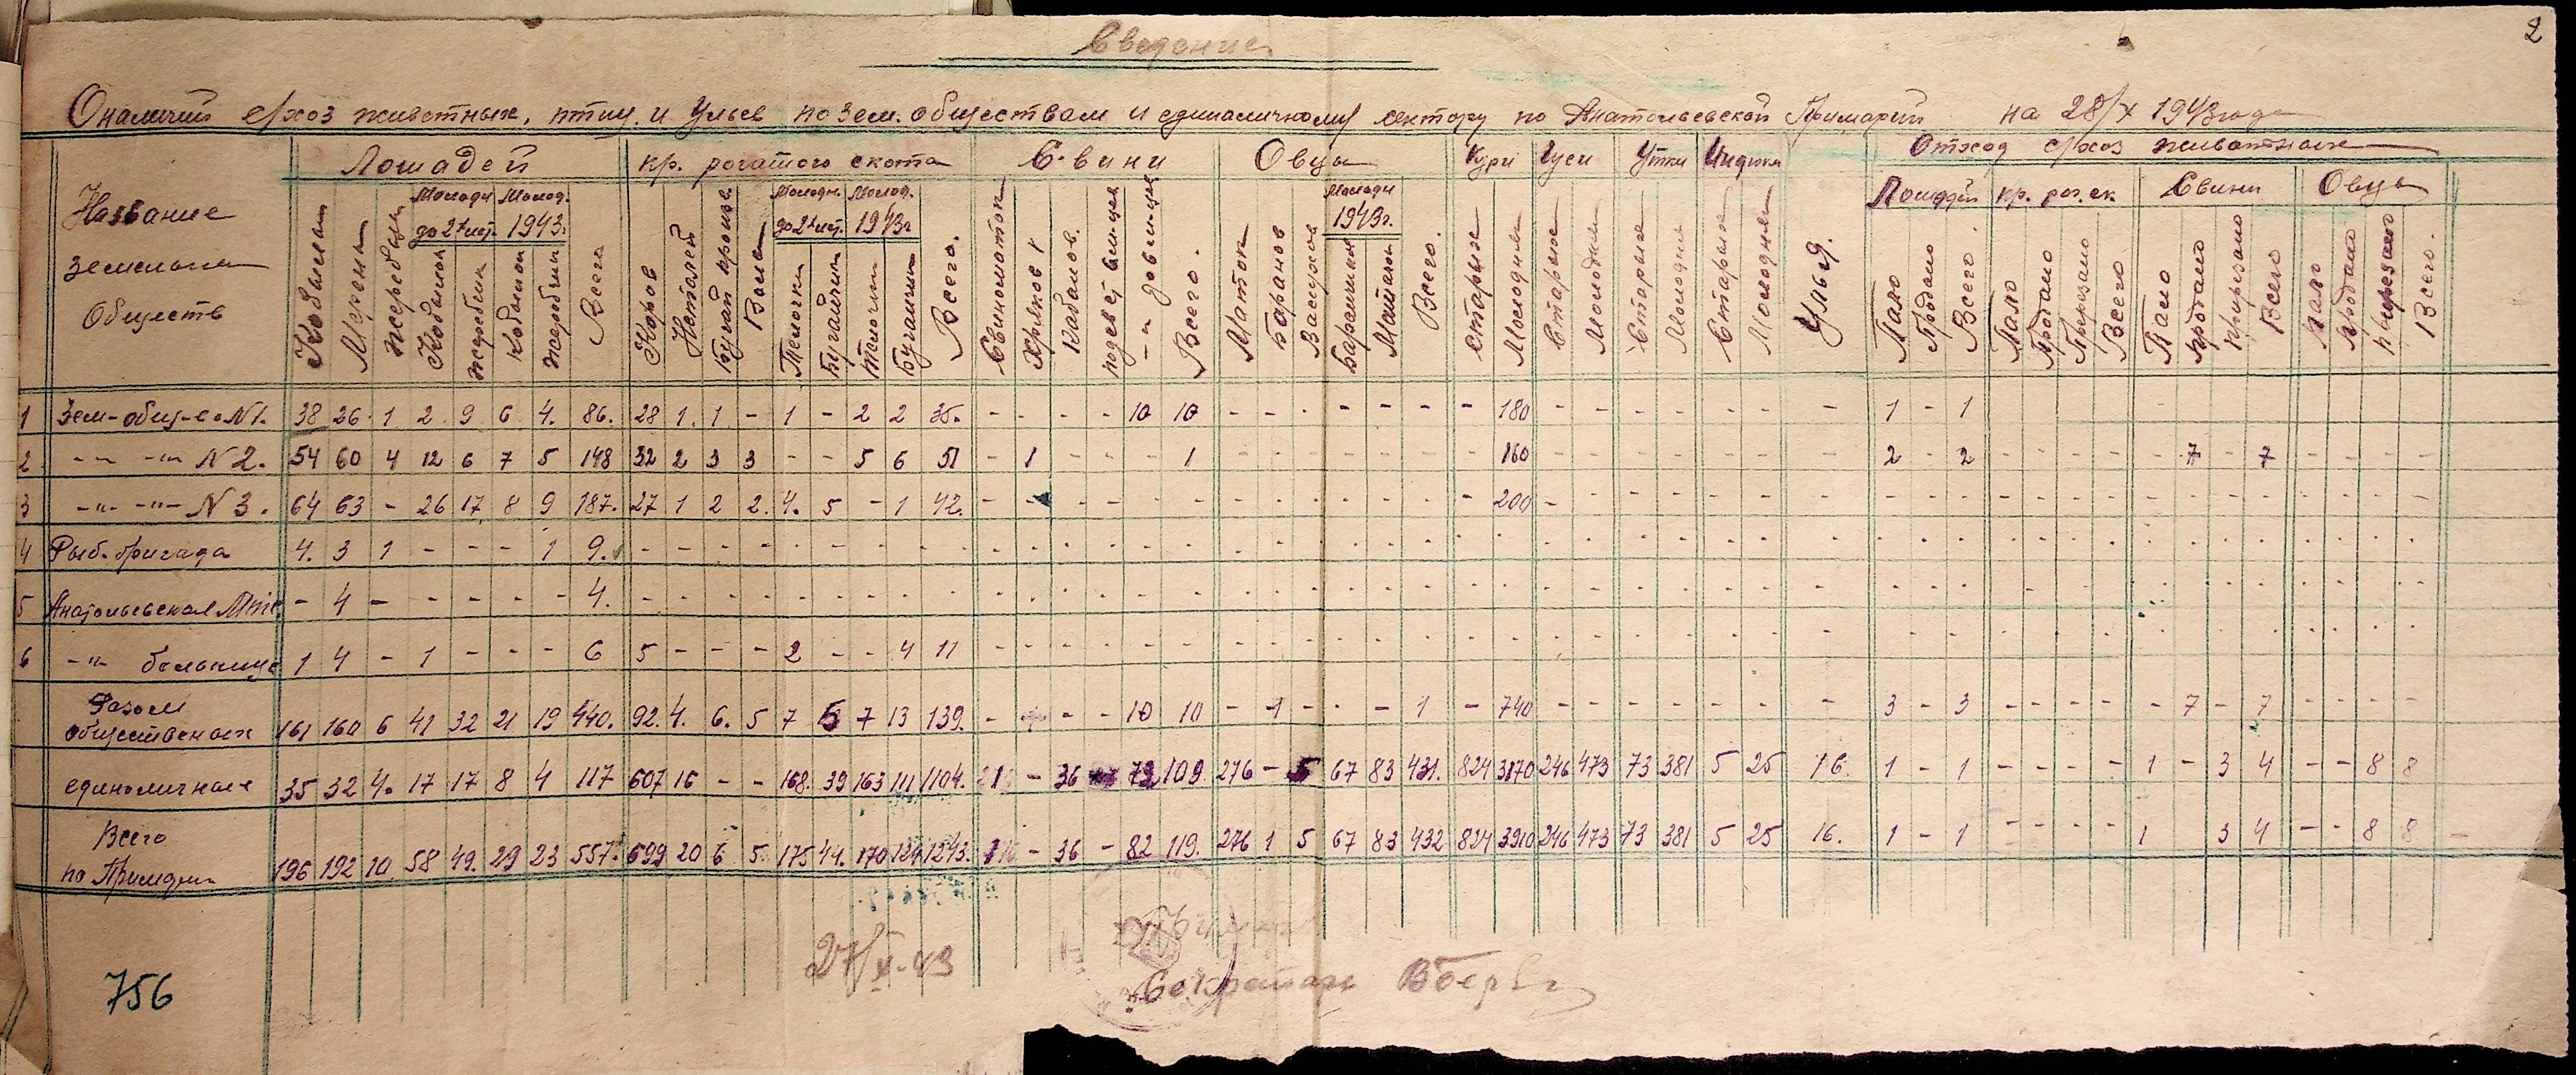 2
Сведение
О наличии с/хоз животных, птиц и Ульев по зем. обществам и единаличному сектору по Анатольевской Примарии на 28/X 1943 года
Название земельных Обществ
Лошадей
кр. рогатого скота
Свини
Овцы
Кури Гуси Утки Индики
Отход с/хоз животных
Молодн. до 2х лет. Молод. 1943.
Молодн. до 2х лет. Молод. 1943г
Молодн 1943г.
Лошадей кр. рог. ск. Свини Овцы
Кобылы Мерены Жеребцы Кобылки Жеребчик Кобылки Жеребчик Всего
Коров Нетелей Бугай Волы Телочки Бугайчик Телочки Бугайчик Всего.
Свиноматок Хряков Кабанов. Всего.
Маток Баранов Валухов Баранчики Всего.
Старых Молодых Старых Молодых Старых Молодых Старых Молодых
Улья.
Пало Продано Всего.
Пало Продано Прирезано Всего
Пало Продано Прирезано Всего
Пало Продано Прирезано Всего.
1 Зем-общ-во N1. 38 26 1 2 9 6 4. 86. 28 1. 1 - 1 - 2 2 35. - - - - 10 10 - - - - - - - 180 - - - - - - - 1 - 1
2 -"- -"- N2. 54 60 4 12 6 7 5 148 32 2 3 3 - - 5 6 51 - 1 - - - 1 - - - - - - - 160 - - - - - - - 2 - 2 - - - - - 7 - 7 - - - -
3 -"- -"- N3. 64 63 - 26 17 8 9 187. 27 1 2 2. 4. 5 - 1 42. - - - - - - - - - - - - 200 - - - - - - - - - - - - - - - - - - - - - -
4 Рыб. бригада 4. 3 1 - - - 1 9. - - - - - - - - - - - - - - - - - - - - - - - - - - - - - - - - - - - - - - - - - - - - - -
5 Анатольевская - 4 - - - - - 4. - - - - - - - - - - - - - - - - - - - - - - - - - - - - - - - - - - - - - - - - - - - - - -
6 -"- больница 1 4 - 1 - - - 6 5 - - - 2 - - 4 11 - - - - - - - - - - - - - - - - - - - - - - - - - - - - - - - - - - - - -
Разом общественных 161 160 6 41 32 21 19 440. 92. 4. 6. 5 7 5 7 13 139. - - - 10 10 - 1 - - - 1 - 740 - - - - - - - 3 - 3 - - - - - 7 - 7 - - - -
единоличных 35 32 4. 17 17 8 4 117 607 16 - - 168. 39 163 111 1104. - 36 109. 276 - 5 67 83 431. 824 3170 246 473 73 381 5 25 16. 1 - 1 - - - - 1 - 3 4 - - 8 8
Всего по Примарии 196 192 10 58 49. 29 23 557. 699 20 6 5. 175 44. 170 124 1243. - 36 - 82 119. 276 1 5 67 83 432 824 3910 246 473 73 381 5 25 16. 1 - 1 - - - - 1 3 4 - - 8 8
27/X-43
Секретарь
756